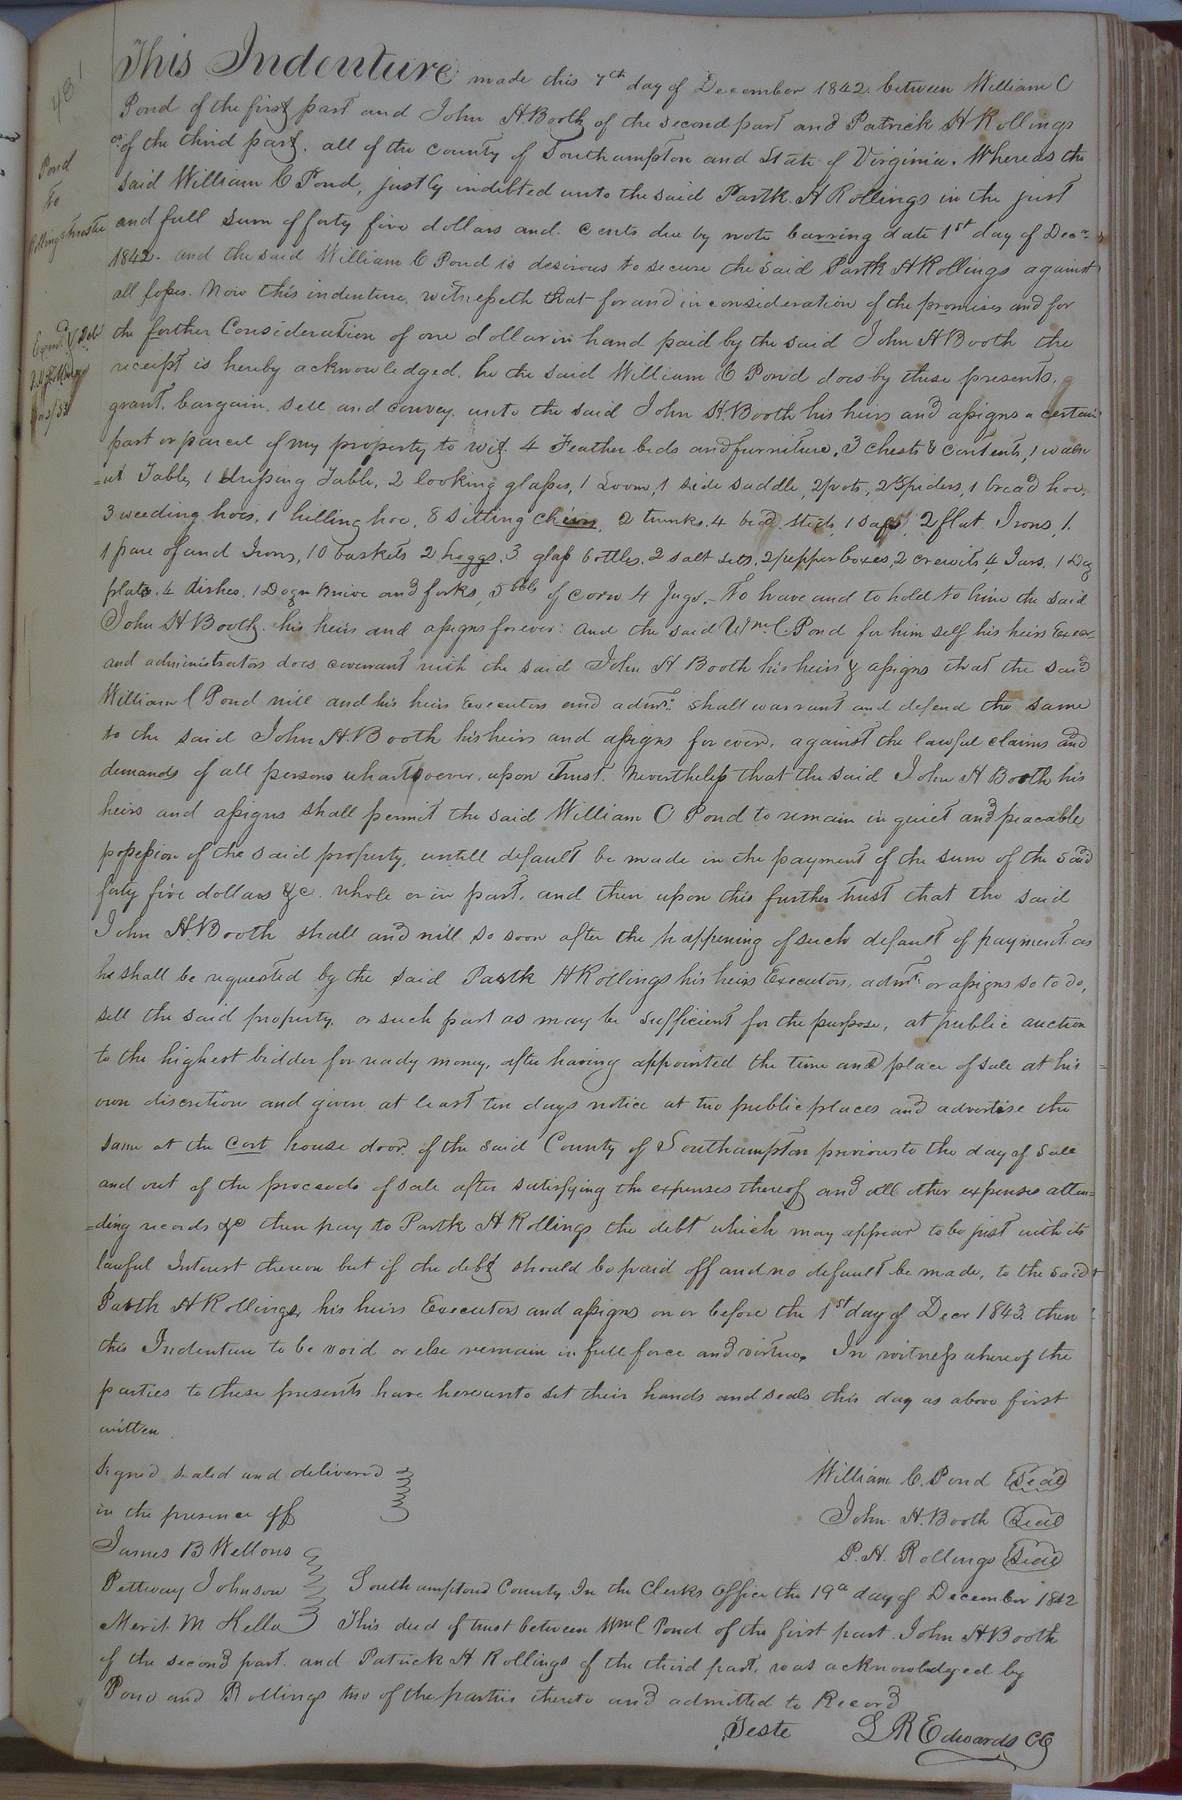 481
This Indenture made this 7th day of December 1842 between William C
Pond of the first part and John H. Booth of the second part and Patrick H Rollings
of the third part. all of the county of Southampton and State of Virginia. Whereas the
Pond
said William C Pond, justly indebted unto the said Partk. H Rollings in the just
To
Rollings trustee
and full sum of forty five dollars and. cents due by note barring date 1st day of Decr
1842. and the said William C Pond is desirous to secure the said Partk H Rollings against
all losses. Now this indenture, witnesseth that for and in consideration of the promises and for
the further Consideration of one dollar in hand paid by the said John H Booth the
receipt is hereby acknowledged. he the said William C Pond does by these presents,
grant, bargain, sell and convey, unto the said John H. Booth his heirs and assigns a certain
part or parcel of my property to wit. 4 Feather beds and furniture, 3 chests & contents, 1 waln
=ut Table, 1 dressing Table, 2 looking glasses, 1 Loom, 1 side saddle, 2 pots, 2 Spiders, 1 bread hoe,
3 weeding hoes, 1 hilling hoe, 8 sitting cheirs, 2 trunks, 4 bed steds, 1 safe, 2 flat Irons, 1.
1 pare of and Irons, 10 baskets 2 hoggs, 3 glass bottles, 2 salt sets, 2 pepper boxes, 2 crewits, 4 Jars, 1 Dz
plats, 4 dishes, 1 Dozn Knive and forks, 5 bbls of corn 4 Jugs. To have and to hold to him the said
John H Booth his heirs and assigns forever: and the said Wm C Pond for him self his heirs Execr
and administrators does covenant with the said John H Booth his heirs & assigns that the said
William C Pond will and his heirs Executors and admrs. shall warrant and defend the same
to the said John H. Booth his heirs and assigns for ever, against the lawful claims and
demands of all persons whartsoever, upon Trust. Nevertheless that the said John H Booth his
heirs and assigns shall permit the said William C Pond to remain in quiet and peacable
possession of the said property, untill default be made in the payment of the sum of the said
forty five dollars &c. whole or in part, and then upon this further trust that the said
John H. Booth shall and will so soon after the happening of such default of payment as
he shall be requested by the said Partk H Rollings his heirs Executors, admrs. or assigns so to do,
sell the said property, or such part as may be sufficient for the purpose, at public auction
to the highest bidder for ready money, after having appointed the time and place of sale at his
own discretion and given at least ten days notice at two public places and advertise the
same at the Cort house door of the said County of Southampton previous to the day of sale
and out of the proceeds of sale after satisfying the expenses thereof and all other expenses atten=
=ding records &c then pay to Partk H Rollings the debt which may appear to be just with its
lawful Interest thereon but if the debt should be paid off and no default be made, to the said
Partk H Rollings, his heirs Executors and assigns on or before the 1st day of Decr 1843 then
this Indenture to be void or else remain in full force and virtue. In witness whereof the
parties to these presents have hereunto set their hands and seals this day as above first
written
Signed sealed and delivered
in the presence off
James B Wellons
Pettway Johnson
Merit M Hella
William C. Pond Seal
John H. Booth Seal
P. H. Rollings Seal
Southampton County In the Clerks Office the 19th day of December 1842
This deed of trust between Wm C Pond of the first part John H Booth
of the second part. and Patrick H Rollings of the third part, was acknowledged by
Pond and Rollings two of the parties thereto and admitted to Record
Teste L R Edwards CC